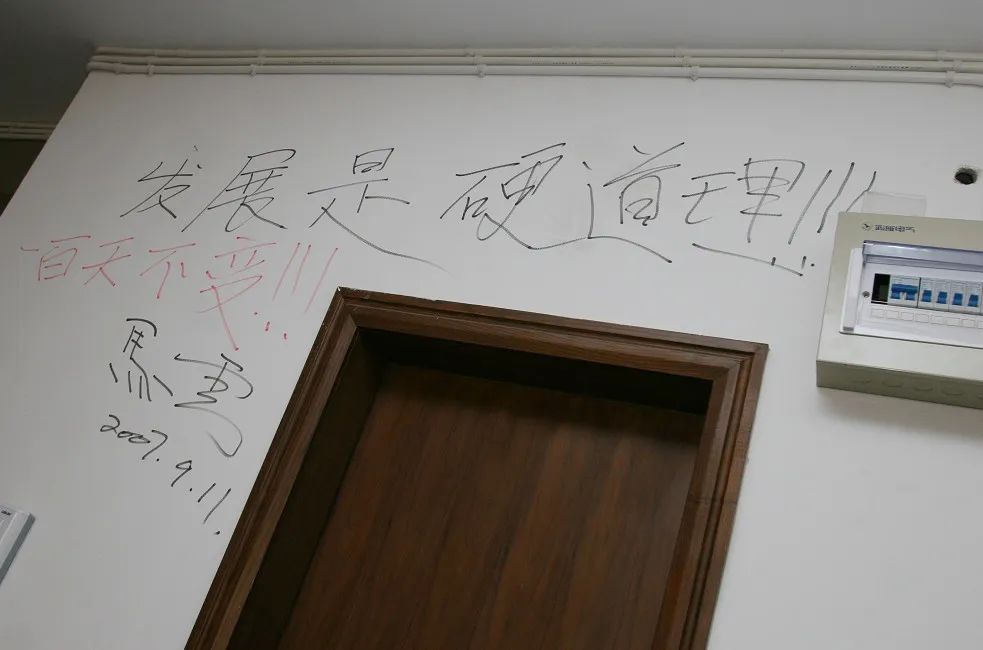 发展是硬道理!!!
一百天不变!!!
馬雲
2007.9.11.